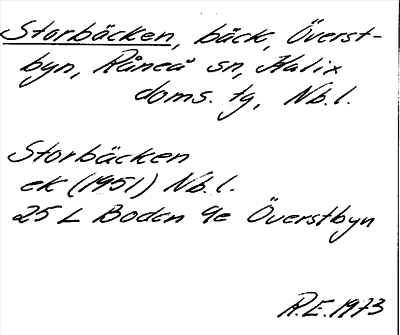 Storbäcken, bäck, Överst-
byn, Råneå sn, Kalix
doms. tg, Nb.l.
Storbäcken
ek (1951) Nb.l.
25 L Boden 9e Överstbyn
R.E. 1973